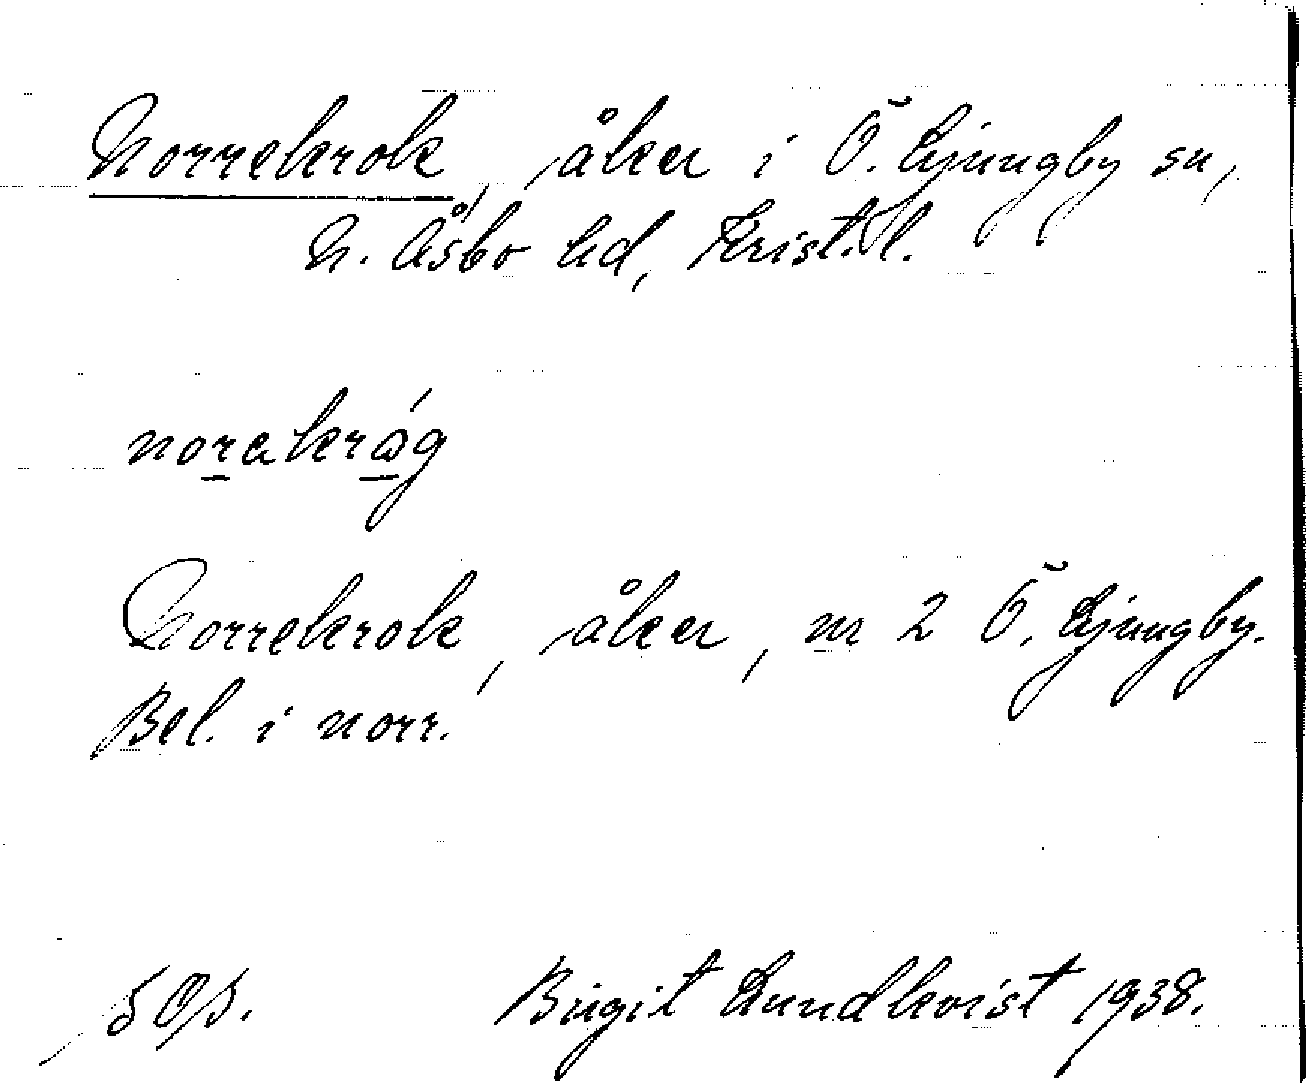 Norrekrok, åker i Ö. Ljungby sn,
N. Åsbo hd, Krist. l.
norakråg
Norrekrok, åker, nr 2 Ö. Ljungby.
Bel. i norr.
Birgit Lundkvist 1938.